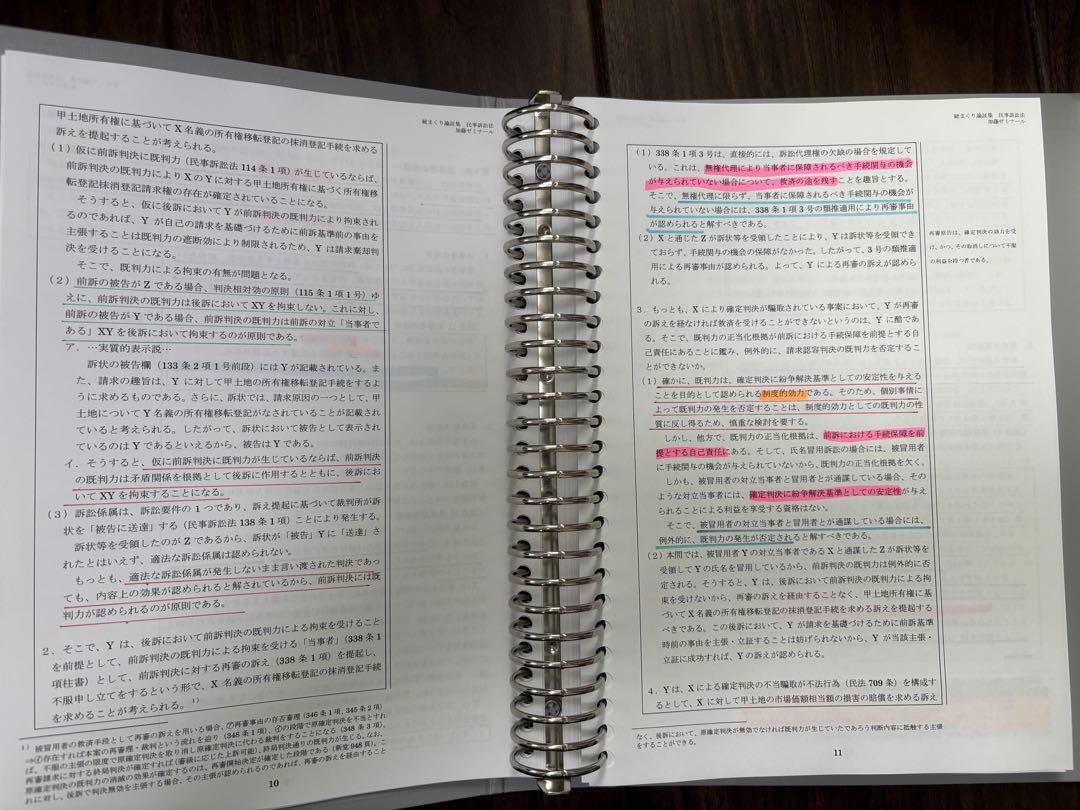 総まくり論証集 民事訴訟法
加藤ゼミナール
甲土地所有権に基づいてX名義の所有権移転登記の抹消登記手続を求める
訴えを提起することが考えられる。
(1)仮に前訴判決に既判力(民事訴訟法114条1項)が生じているならば、
前訴判決の既判力によりXのYに対する甲土地所有権に基づく所有権移
転登記抹消登記請求権の存在が確定されていることになる。
そうすると、仮に後訴においてYが前訴判決の既判力により拘束され
るのであれば、Yが自己の請求を基礎づけるために前訴基準前の事由を
主張することは既判力の遮断効により制限されるため、Yは請求棄却判
決を受けることになる。
そこで、既判力による拘束の有無が問題となる。
(2)前訴の被告がZである場合、判決相対効の原則(115条1項1号)ゆ
えに、前訴判決の既判力は後訴においてXYを拘束しない。これに対し、
前訴の被告がYである場合、前訴判決の既判力は前訴の対立「当事者で
ある」XYを後訴において拘束するのが原則である。
ア.…実質的表示説…
訴状の被告欄(133条2項1号前段)にはYが記載されている。ま
た、請求の趣旨は、Yに対して甲土地の所有権移転登記手続をするよ
うに求めるものである。さらに、訴状では、請求原因の一つとして、甲
土地についてY名義の所有権移転登記がなされていることが記載され
ていると考えられる。したがって、訴状において被告として表示され
ているのはYであるといえるから、被告はYである。
イ.そうすると、仮に前訴判決に既判力が生じているならば、前訴判決
の既判力は矛盾関係を根拠として後訴に作用するとともに、後訴にお
いてXYを拘束することになる。
(3)訴訟係属は、訴訟要件の1つであり、訴え提起に基づいて裁判所が訴
状を「被告に送達」する(民事訴訟法138条1項)ことにより発生する。
訴状等を受領したのがZであるから、訴状が「被告」Yに「送達」さ
れたとはいえず、適法な訴訟係属は認められない。
もっとも、適法な訴訟係属が発生しないまま言い渡された判決であっ
ても、内容上の効果が認められると解されているから、前訴判決には既
判力が認められるのが原則である。
2.そこで、Yは、後訴において前訴判決の既判力による拘束を受けること
を前提として、前訴判決の既判力による拘束を受ける「当事者」(338条1
項柱書)として、前訴判決に対する再審の訴え(338条1項)を提起し、
不服申し立てをするという形で、X名義の所有権移転登記の抹消登記手続
を求めることが考えられる。1)
1)被冒用者の救済手段として再審の訴えを用いる場合、㋐再審事由の存否審理(346条1項、345条2項)
→㋑存在すれば本案の再審理・裁判という流れを辿り(348条1項)、㋑の段階で原確定判決を不当とすれ
ば、不服の主張の限度で原確定判決を取り消し原確定判決に代わる裁判をすることになる(348条3項)。
再審請求に対する終局判決が確定すれば(審級に応じた上訴可能)、終局判決通りの既判力が生じる。なお、
原確定判決の既判力の消滅の効果が確定するのは、再審開始決定が確定した段階である(新堂948頁)。こ
れに対し、後訴で判決無効を主張する場合、その主張が認められるのであれば、再審の訴えを経由すること
10
総まくり論証集 民事訴訟法
加藤ゼミナール
(1)338条1項3号は、直接的には、訴訟代理権の欠缺の場合を規定して
いる。これは、無権代理により当事者に保障されるべき手続関与の機会
が与えられていない場合について、救済の途を残すことを趣旨とする。
そこで、無権代理に限らず、当事者に保障されるべき手続関与の機会が
与えられていない場合には、338条1項3号の類推適用により再審事由
が認められると解すべきである。
(2)Xと通じたZが訴状等を受領したことにより、Yは訴状等を受領でき
ておらず、手続関与の機会の保障がなかった。したがって、3号の類推適
用による再審事由が認められる。よって、Yによる再審の訴えが認めら
れる。
再審原告は、確定判決の効力を受
け、かつ、その取消しについて不服
の利益を持つ者である。
3.もっとも、Xにより確定判決が騙取されている事案において、Yが再審
の訴えを経なければ救済を受けることができないというのは、Yに酷であ
る。そこで、既判力の正当化根拠が前訴における手続保障を前提とする自
己責任にあることに鑑み、例外的に、請求認容判決の既判力を否定するこ
とができないか。
(1)確かに、既判力は、確定判決に紛争解決基準としての安定性を与える
ことを目的として認められる制度的効力である。そのため、個別事情に
よって既判力の発生を否定することは、制度的効力としての既判力の性
質に反し得るため、慎重な検討を要する。
しかし、他方で、既判力の正当化根拠は、前訴における手続保障を前
提とする自己責任にある。そして、氏名冒用訴訟の場合には、被冒用者
に手続関与の機会が与えられていないから、既判力の正当化根拠を欠く。
しかも、被冒用者の対立当事者と冒用者とが通謀している場合、その
ような対立当事者には、確定判決に紛争解決基準としての安定性が与え
られることによる利益を享受する資格はない。
そこで、被冒用者の対立当事者と冒用者とが通謀している場合には、
例外的に、既判力の発生が否定されると解すべきである。
(2)本問では、被冒用者Yの対立当事者であるXと通謀したZが訴状等を
受領してYの氏名を冒用しているから、前訴判決の既判力は例外的に否
定される。そうすると、Yは、後訴において前訴判決の既判力による拘
束を受けないから、再審の訴えを経由することなく、甲土地所有権に基
づいてX名義の所有権移転登記の抹消登記手続を求める訴えを提起する
べきである。この後訴において、Yが請求を基礎づけるために前訴基準
時前の事由を主張・立証することは妨げられないから、Yが当該主張・
立証に成功すれば、Yの訴えが認められる。
4.Yは、Xによる確定判決の不当騙取が不法行為(民法709条)を構成す
るとして、Xに対して甲土地の市場価額相当額の損害の賠償を求める訴え
なく、後訴において、原確定判決が無効でなければ既判力が生じていたであろう判断内容に抵触する主張
をすることができる。
11